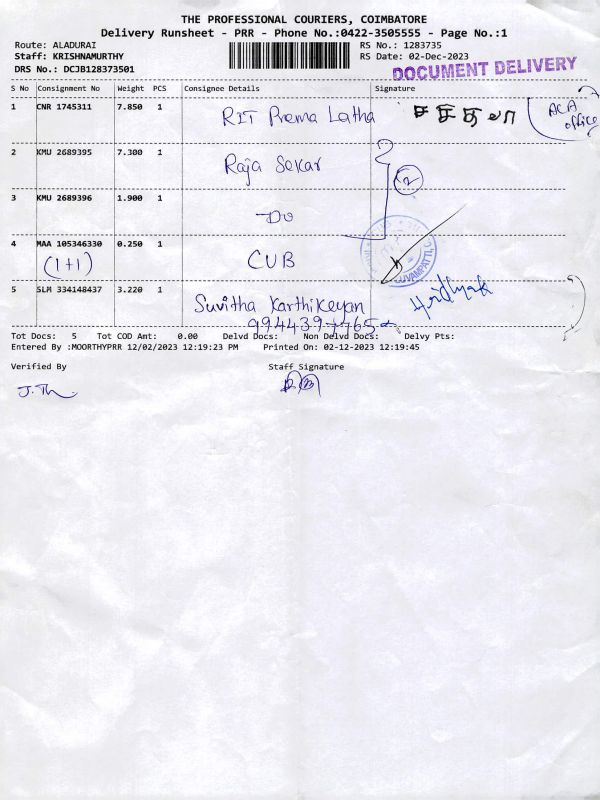 THE PROFESSIONAL COURIERS, COIMBATORE
Delivery Runsheet - PRR - Phone No.:0422-3505555 - Page No.:1
Route: ALADURAI
RS No.: 1283735
Staff: KRISHNAMURTHY
RS Date: 02-Dec-2023
DRS No.: DCJB128373501
DOCUMENT DELIVERY
S No Consignment No Weight PCS Consignee Details Signature
1 CNR 1745311 7.850 1 RIT Prema Latha
ACA office
2 KMU 2689395 7.300 1 Raja Sekar
2
3 KMU 2689396 1.900 1 Do
4 MAA 105346330 0.250 1 CUB
(1+1)
5 SLM 334148437 3.220 1 Suvitha Karthikeyan
Tot Docs: 5 Tot COD Amt: 0.00 Delvd Docs: Non Delvd Docs: Delvy Pts:
Entered By :MOORTHYPRR 12/02/2023 12:19:23 PM Printed On: 02-12-2023 12:19:45
Verified By Staff Signature